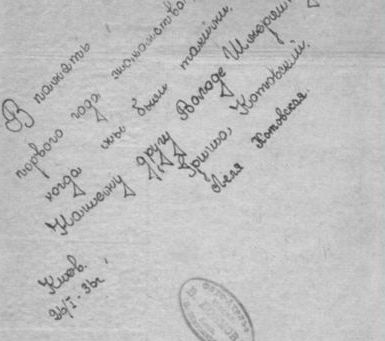 В память
первого года знакомства
когда мы были такими.
Нашему другу Володе
Гриша Котовский.
Леля Котовская.
Киев.
26/I-36г